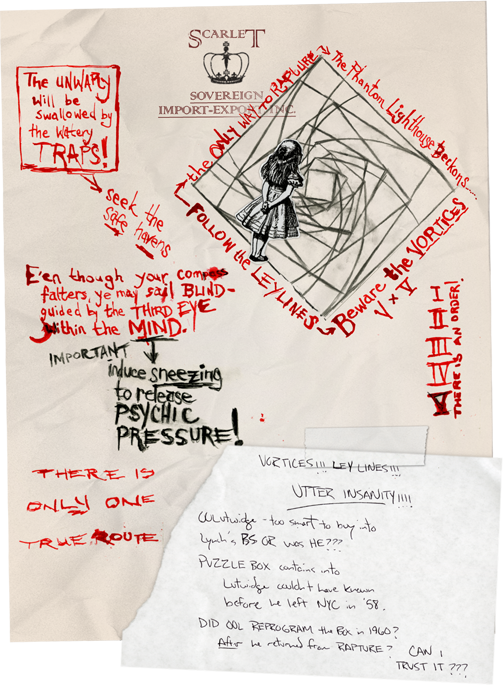 SCARLET
SOVEREIGN
IMPORT-EXPORT, INC.
The UNWARY
will be
swallowed by
the watery
TRAPS!
seek the
safe havens
the ONLY WAY TO RAPTURE
The Phantom Lighthouse Beckons.....
FOLLOW the LEYLINES
Beware the VORTICES
V x V
I
II
III
IV
THERE IS AN ORDER!
E'en though your compass
falters, ye may sail BLIND-
guided by the THIRD EYE
within the MIND.
IMPORTANT
induce sneezing
to release
PSYCHIC
PRESSURE!
THERE IS
ONLY ONE
TRUE ROUTE
VORTICES!!! LEY LINES!!!
UTTER INSANITY!!!!
OLutwidge - too smart to buy into
Lynch's BS OR was HE???
PUZZLE BOX contains info
Lutwidge couldn't have known
before he left NYC in '58.
DID OOL REPROGRAM the Box in 1960?
After he returned from RAPTURE?
CAN I
TRUST IT???